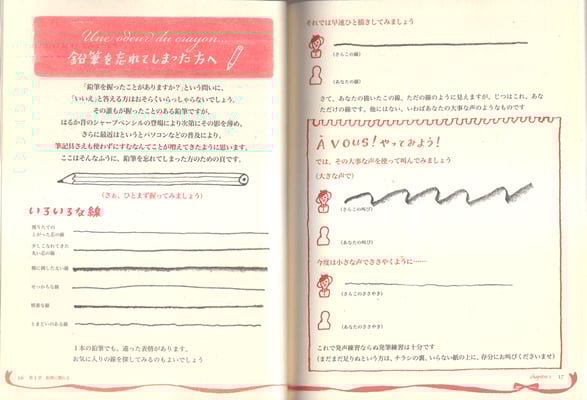 Une odeur du crayon.....
鉛筆を忘れてしまった方へ
「鉛筆を握ったことがありますか？」という問いに、
「いいえ」と答える方はおそらくいらっしゃらないでしょう。
その誰もが握ったことのある鉛筆ですが、
はるか昔のシャープペンシルの登場により次第にその影を薄め、
さらに最近はというとパソコンなどの普及により、
筆記具さえも使わずにすむなんてことが増えてきたように思います。
ここはそんなふうに、鉛筆を忘れてしまった方のための頁です。
(さぁ、ひとまず握ってみましょう)
いろいろな線
削りたての
とがった芯の線
少しこなれてきた
丸い芯の線
横に倒した太い線
せっかちな線
慎重な線
とまどいのある線
1本の鉛筆でも、違った表情があります。
お気に入りの線を探してみるのもよいでしょう
16
それでは早速ひと描きしてみましょう
(さらこの線)
(あなたの線)
さて、あなたの描いたこの線、ただの線のように見えますが、じつはこれ、あな
ただけの線です。他にはない、いわばあなたの大事な声のようなものです
À vous! やってみよう!
では、その大事な声を使って叫んでみましょう
(大きな声で)
(さらこの叫び)
(あなたの叫び)
今度は小さな声でささやくように……
(さらこのささやき)
(あなたのささやき)
これで発声練習ならぬ発筆練習は十分です
(まだまだ足りぬという方は、チラシの裏、いらない紙の上に、存分にお叫びくださいませ)
chapitre 1 17